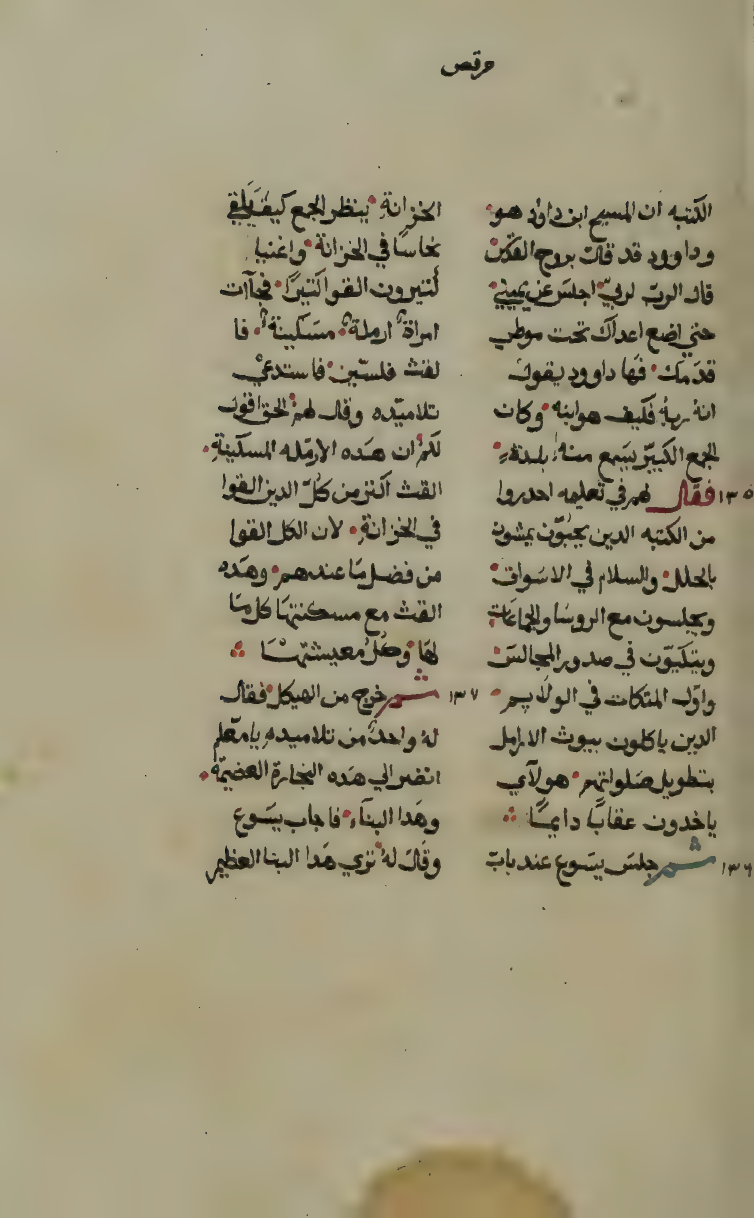 مرقص
الكتبه ان المسيح ابن داوُد هو
وداوود قد قال بروح القدس
قال الربّ لربيّ اجلسَ عن يميني
حتي اضع اعداك تحت موطي
قدَمك فها داوود يقول
انهُ ربهُ فكيف هو ابنه وكان
الجمع الكبيّر يسَمع منه بلدة
١٣٥ فقال لهم في تعليمه احدروا
من الكتبه الدين يحبّون يمشون
بالحلل والسلام في الاسَواق
ويجلسون مع الروسَا والجماعَات
ويتكيّون في صدور المجالسَ
واوّل المتكات في الولايم
الدين ياكلون بيوت الارامل
بتطويل صَلواتهم هولآي
ياخدون عقابًا دايمًا
١٣٦ ثم جلسَ يسَوع عند باب
الخزانةِ ينظر الجمع كيف يلقي
نحاسًا في الخزانة واغنيا
كتيرون القوا كتيرًا فجآات
امراة ارملة مسَكينة فا
لقت فلسَين فاستدعيْ
تلاميّده وقال لهمْ الحق اقول
لكمْ ان هَده الارمّله المسَكينةِ
القت اكتر من كلّ الدين القوا
في الخزانةِ لان الكل القوا
من فضل مَا عندهم وهَده
القت مع مسكنتهَا كل مَا
لهَا وكلُ معيشتهَا
١٣٧ ثم خرج من الهيكل فقال
لهُ واحدٌ من تلاميدهِ يا معّلم
انضر الي هَده الحجارة العضيمّة
وهَدا البنآء فاجاب يسَوع
وقال لهُ تري هَدا البنا العظيم